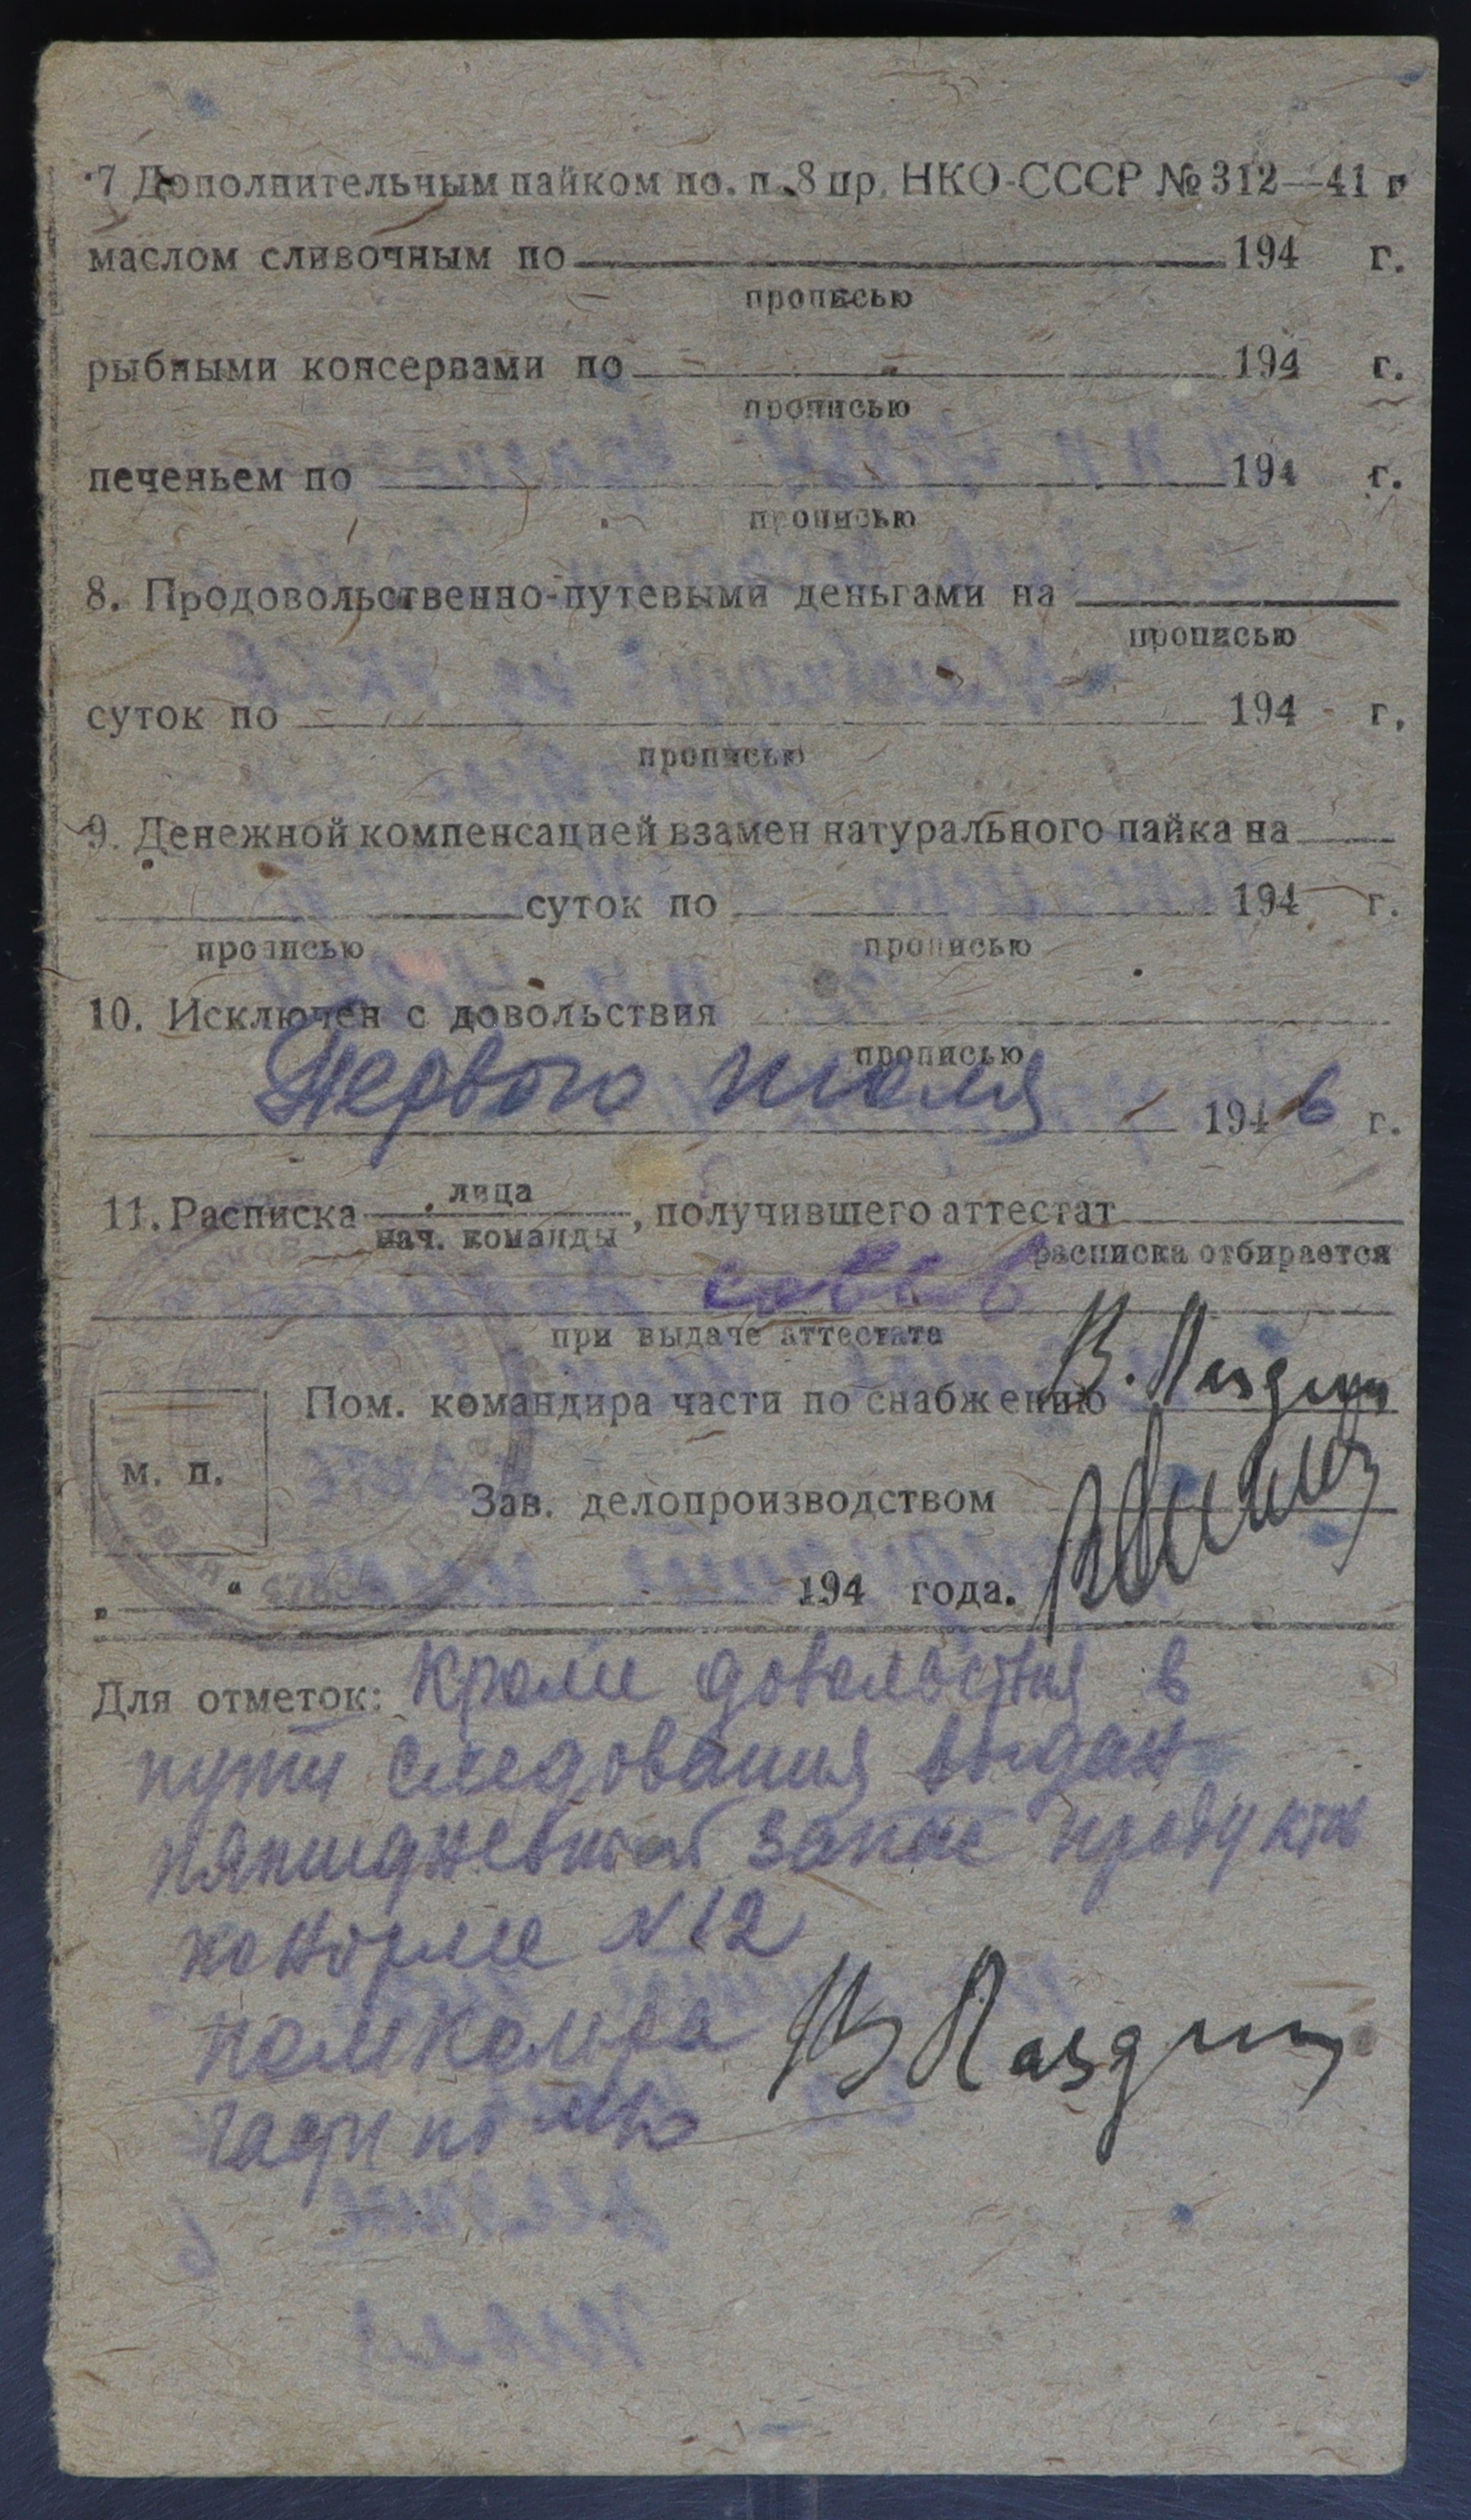 7 Дополнительным пайком по. п. 8 пр. НКО-СССР № 312—41 г
маслом сливочным по 194 г.
прописью
рыбными консервами по 194 г.
прописью
печеньем по 194 г.
прописью
8. Продовольственно-путевыми деньгами на
прописью
суток по 194 г.
прописью
9. Денежной компенсацией взамен натурального пайка на
суток по 194 г.
прописью прописью
10. Исключен с довольствия
прописью
Первого июля 1946 г.
11. Расписка лица , получившего аттестат
нач. команды
расписка отбирается
при выдаче аттестата
Пом. командира части по снабжению
м. п.
Зав. делопроизводством
„ “ 194 года.
Для отметок: Кроме довольствия в
пути следования выдан
пятидневный запас продуктов
по норме № 12
помкомра
части по МТО